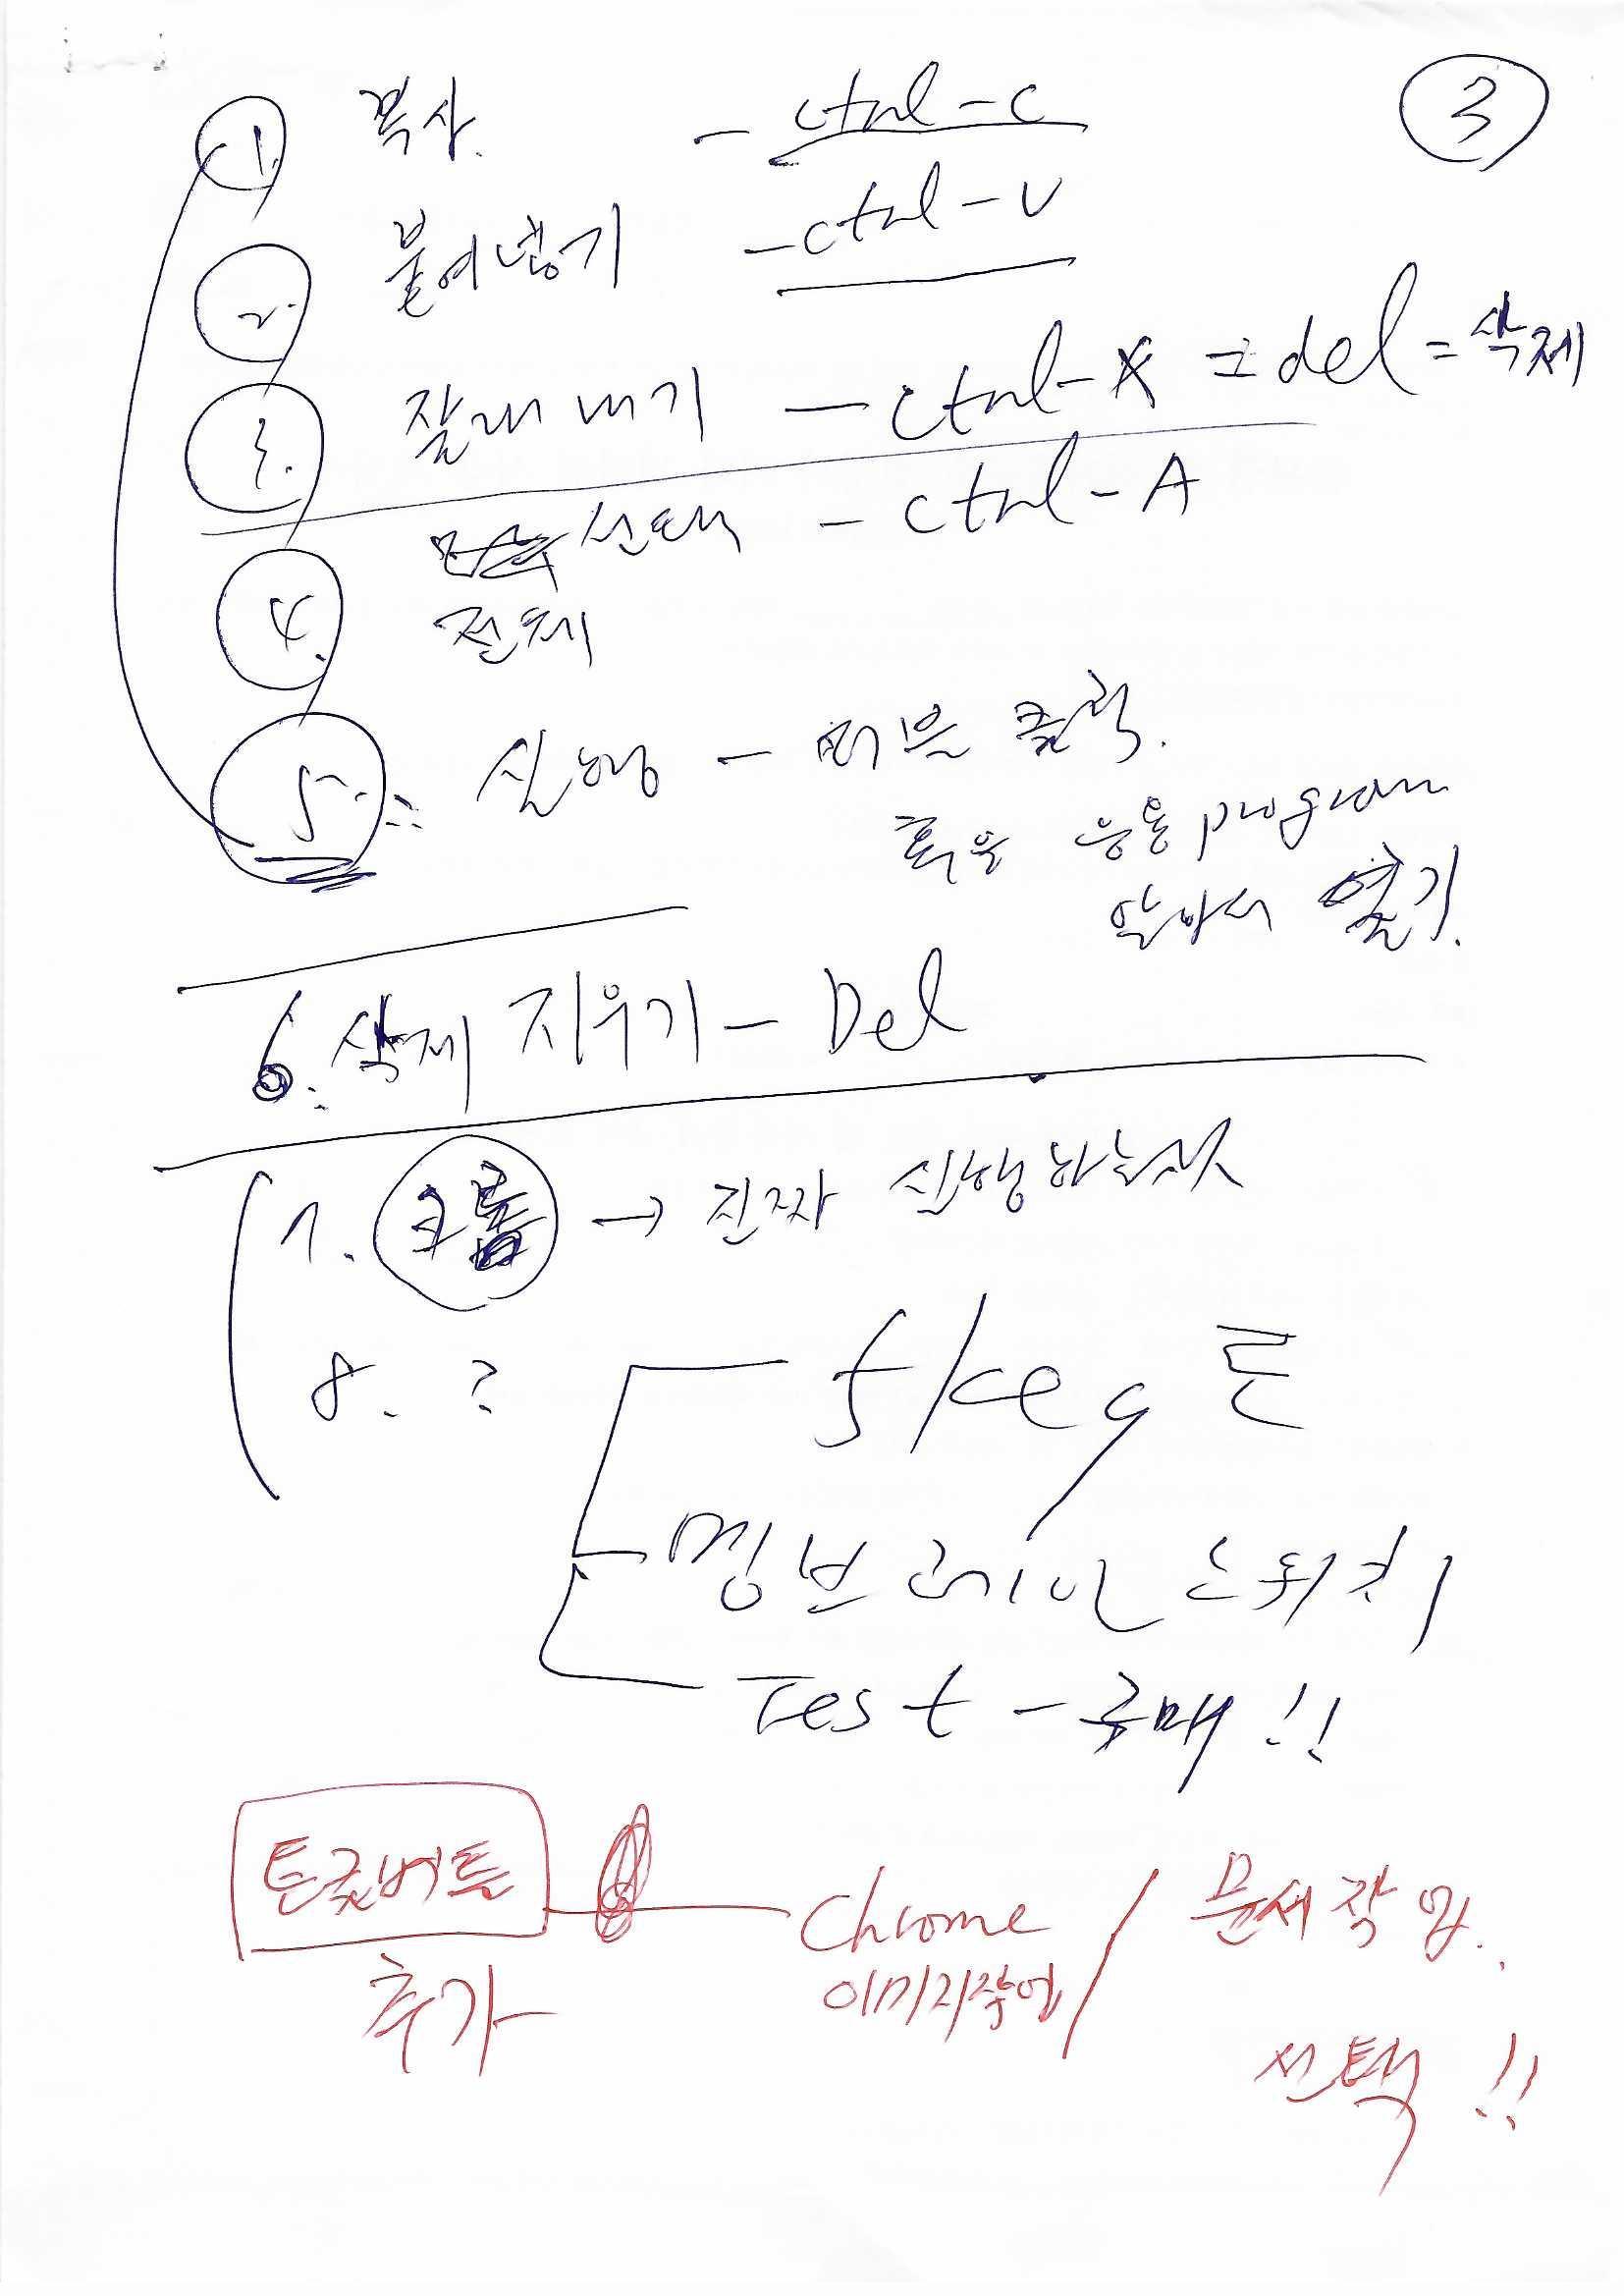 3
1. 복사. - ctrl-c
2. 붙여넣기 - ctrl-v
3. 잘래내기 - ctrl-X = del = 삭제
4. 선택 - ctrl-A
전체
5. 실행 - 더블 클릭.
혹은 응용 program
알아서 열기.
6. 삭제 지우기 - Del
7. 크롬 → 진짜 실행하는지
8. ?
f/key 든
멍브레인 스위치
Test - 구매!!
토글버튼
추가
Chrome / 문서작업.
이미지작업
선택!!